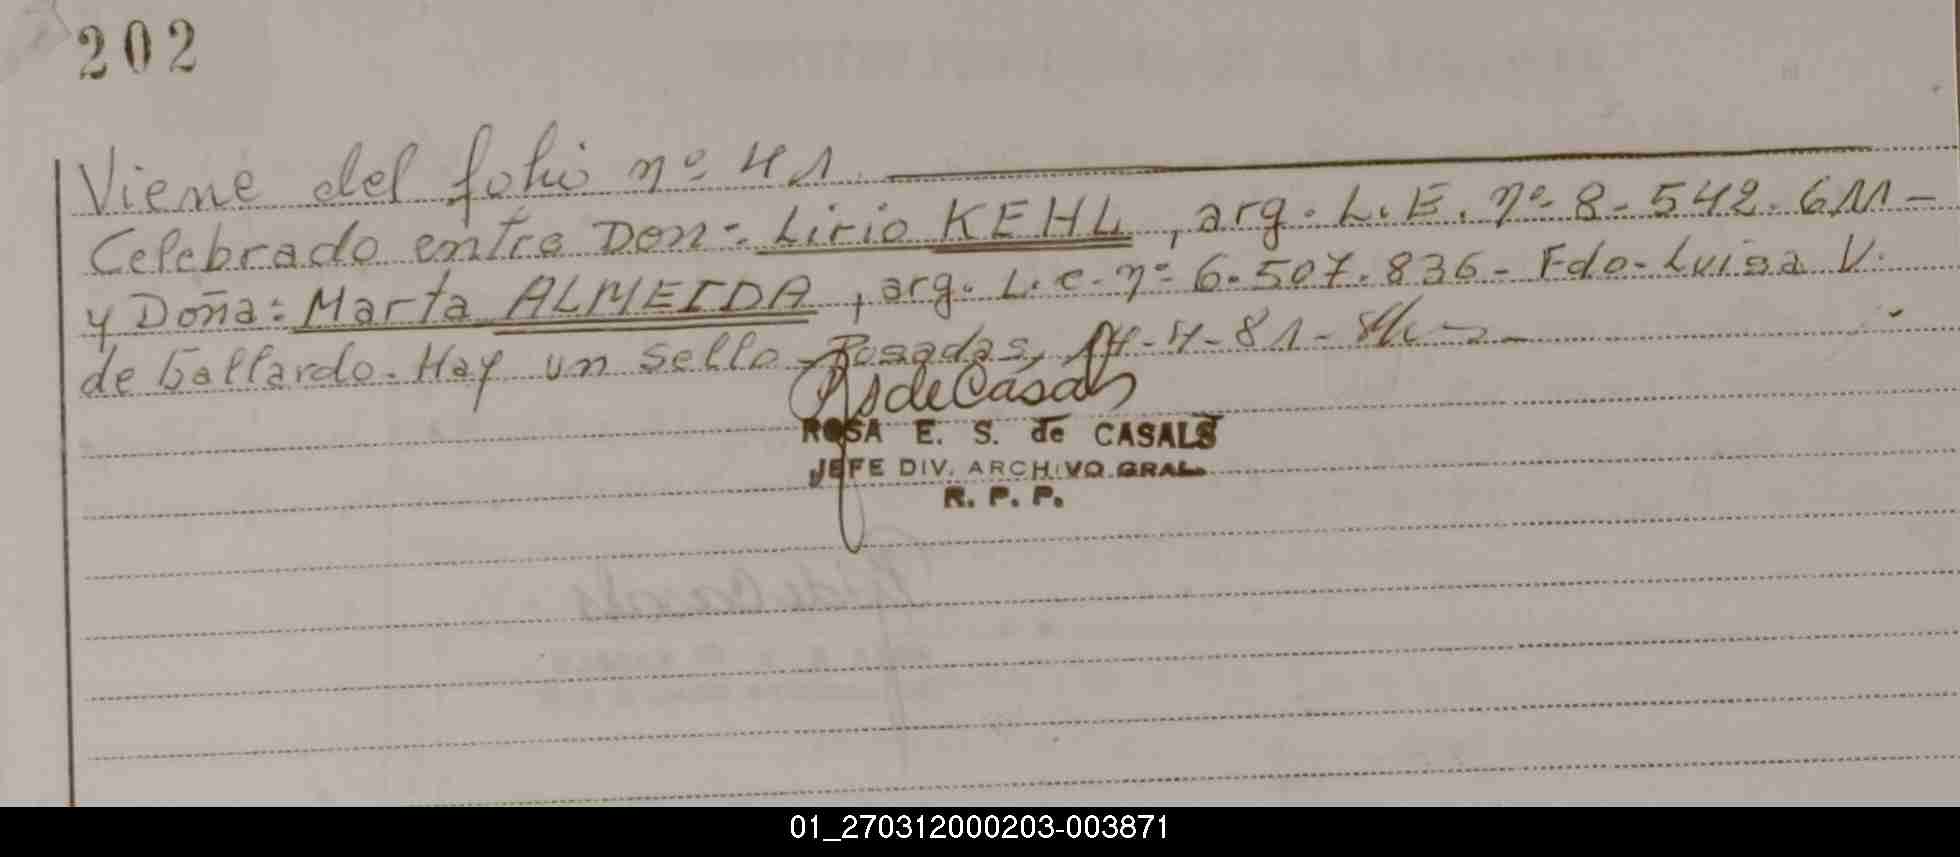 202
Viene del folio nº 41.
Celebrado entre Don: Lirio KEHL, arg. L.E. nº 8.542.611-
y Doña: Marta ALMEIDA, arg. L.C. nº 6.507.836- Fdo. Luisa V.
de Gallardo. Hay un sello. Posadas, 14-4-81-
RSdeCasals
ROSA E. S. de CASALS
JEFE DIV. ARCHIVO GRAL.
R. P. P.
01_270312000203-003871